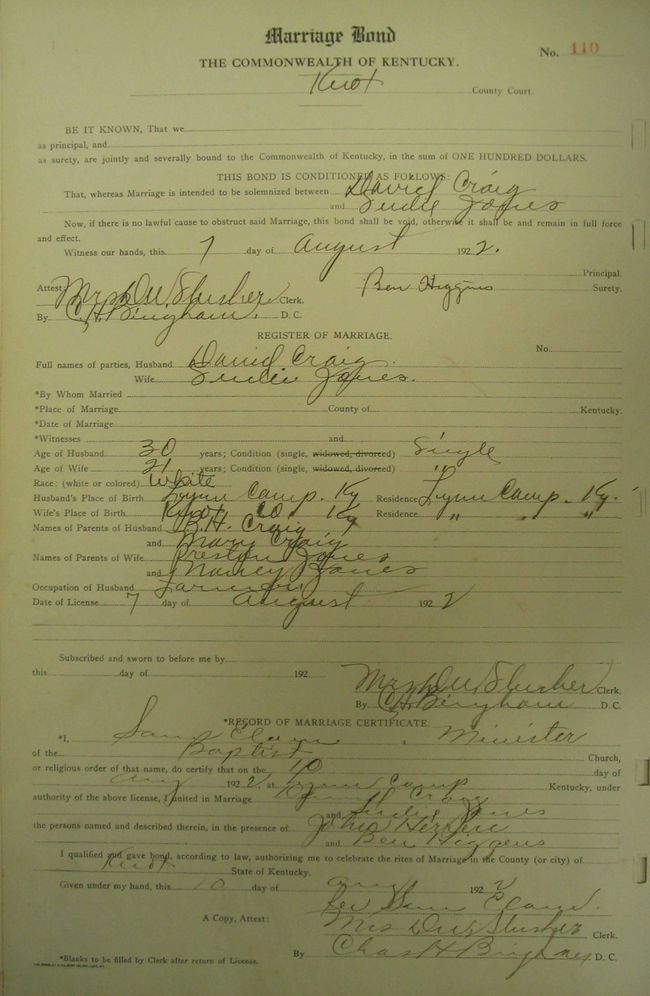 Marriage Bond
No. 110
THE COMMONWEALTH OF KENTUCKY.
Knox County Court.
BE IT KNOWN, That we
as principal, and
as surety, are jointly and severally bound to the Commonwealth of Kentucky, in the sum of ONE HUNDRED DOLLARS.
THIS BOND IS CONDITIONED AS FOLLOWS:
That, whereas Marriage is intended to be solemnized between David Craig
and Sudie Jones
Now, if there is no lawful cause to obstruct said Marriage, this bond shall be void, otherwise it shall be and remain in full force
and effect.
Witness our hands, this 7 day of August 1922.
Principal.
Attest: Mrs D.W. Slusher Clerk. Ben Higgins Surety.
By C.H. Bingham. D. C.
REGISTER OF MARRIAGE.
No.
Full names of parties, Husband David Craig.
Wife Sudie Jones.
*By Whom Married
*Place of Marriage County of Kentucky.
*Date of Marriage
*Witnesses and
Age of Husband 30 years; Condition (single, widowed, divorced) Single
Age of Wife 21 years; Condition (single, widowed, divorced) "
Race: (white or colored) White
Husband's Place of Birth Lynn Camp. Ky Residence Lynn Camp. Ky.
Wife's Place of Birth Knox Co Ky Residence " " "
Names of Parents of Husband B.H. Craig
and Mary Craig
Names of Parents of Wife Preston Jones
and Nancy Jones
Occupation of Husband Farmer
Date of License 7 day of August 1922
Subscribed and sworn to before me by
this day of 192
Mrs D.W. Slusher Clerk.
By C.H. Bingham D. C.
*RECORD OF MARRIAGE CERTIFICATE.
*I, Sam , a Minister
of the Baptist Church,
or religious order of that name, do certify that on the 10 day of
Aug 1922 at Lynn Camp Kentucky, under
authority of the above license, I united in Marriage Craig
and Sudie Jones
the persons named and described therein, in the presence of John
and Ben Higgens
I qualified and gave bond, according to law, authorizing me to celebrate the rites of Marriage in the County (or city) of
Knox State of Kentucky.
Given under my hand, this 10 day of Aug 1922
Rev Sam
A Copy, Attest: Mrs D.W. Slusher Clerk.
By Chas H Bingham D. C.
*Blanks to be filled by Clerk after return of License.